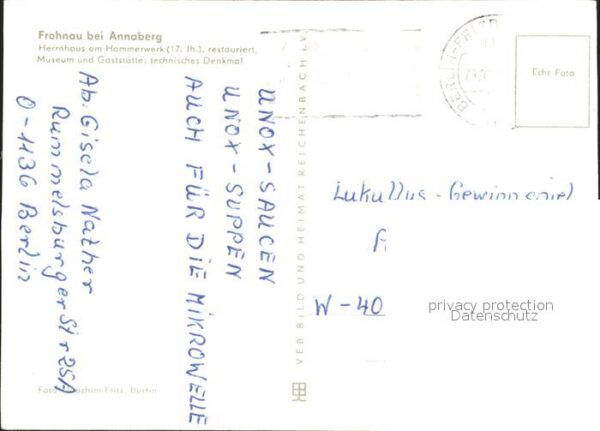 Frohnau bei Annaberg
Herrnhaus am Hammerwerk (17. Jh.), restauriert,
Museum und Gaststätte, technisches Denkmal
Ab. Gisela Nather
Rummelsburger Str 25A
O-1136 Berlin
UNOX-SAUCEN
UNOX-SUPPEN
AUCH FÜR DIE MIKROWELLE
VEB BILD UND HEIMAT REICHENBACH i.V.
BERLIN
Echt Foto
Lukullus-Gewinnspiel
W-40
privacy protection
Datenschutz
Foto: Joachim Fritz, Berlin